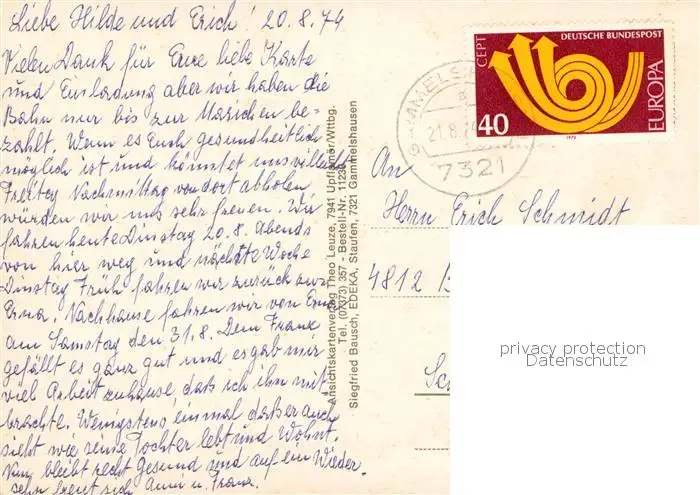 Liebe Hilde und Erich! 20.8.74
Vielen Dank für Eure liebe Karte
und Einladung aber wir haben die
Bahn nur bis zur Marichen be-
zahlt. Wenn es Euch gesundheitlich
möglich ist und könntet uns vielleicht
Freitag Nachmittag von dort abholen
würden wir uns sehr freuen. Wir
fahren heute Dinstag 20.8. Abends
von hier weg und nächste Woche
Dinstag Früh fahren wir zurück zur
Erna. Nachhause fahren wir von Erna
am Samstag den 31.8. Dem Franz
gefällt es ganz gut und es gab mir
viel Arbeit zuhause, daß ich ihn mit
brachte. Wenigstens einmal daß er auch
sieht wie seine Tochter lebt und Wohnt.
Nun bleibt recht Gesund und auf ein Wieder-
sehn freut sich Anni u. Franz.
Ansichtskartenverlag Theo Leuze, 7941 Upflamör/Wttbg.
Tel. (07373) 357 - Bestell-Nr. 11230
Siegfried Bausch, EDEKA, Staufen, 7321 Gammelshausen
CEPT
DEUTSCHE BUNDESPOST
EUROPA
40
1973
21.8.74
7321
An
Herrn Erich Schmidt
4812 B
Sc
privacy protection
Datenschutz